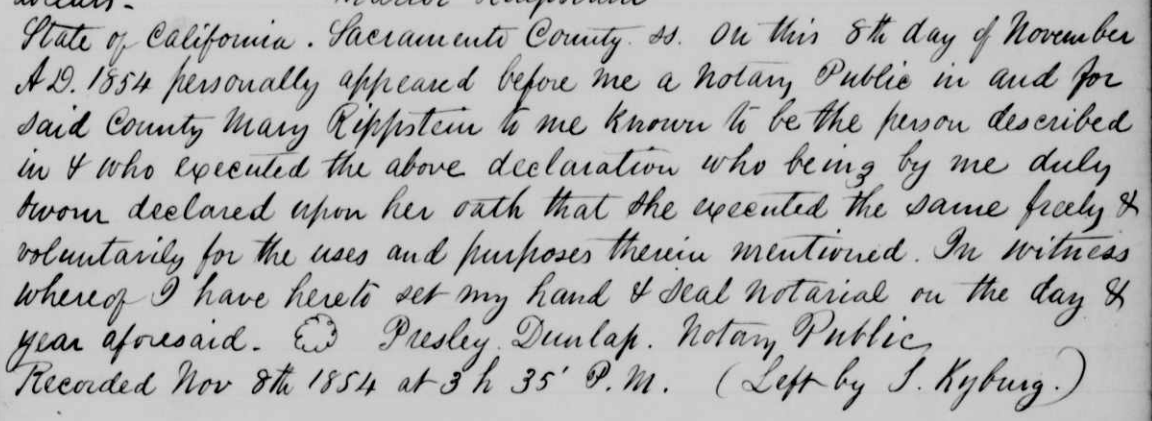 State of California. Sacramento County. ss. On this 8th day of November
A.D. 1854 personally appeared before me a Notary Public in and for
said County Mary Rippstein to me known to be the person described
in & who executed the above declaration who being by me duly
sworn declared upon her oath that she executed the same freely &
voluntarily for the uses and purposes therein mentioned. In witness
whereof I have hereto set my hand & seal notarial on the day &
year aforesaid. Presley Dunlap. Notary Public
Recorded Nov 8th 1854 at 3 h 35' P.M. (Left by S. Kyburg.)